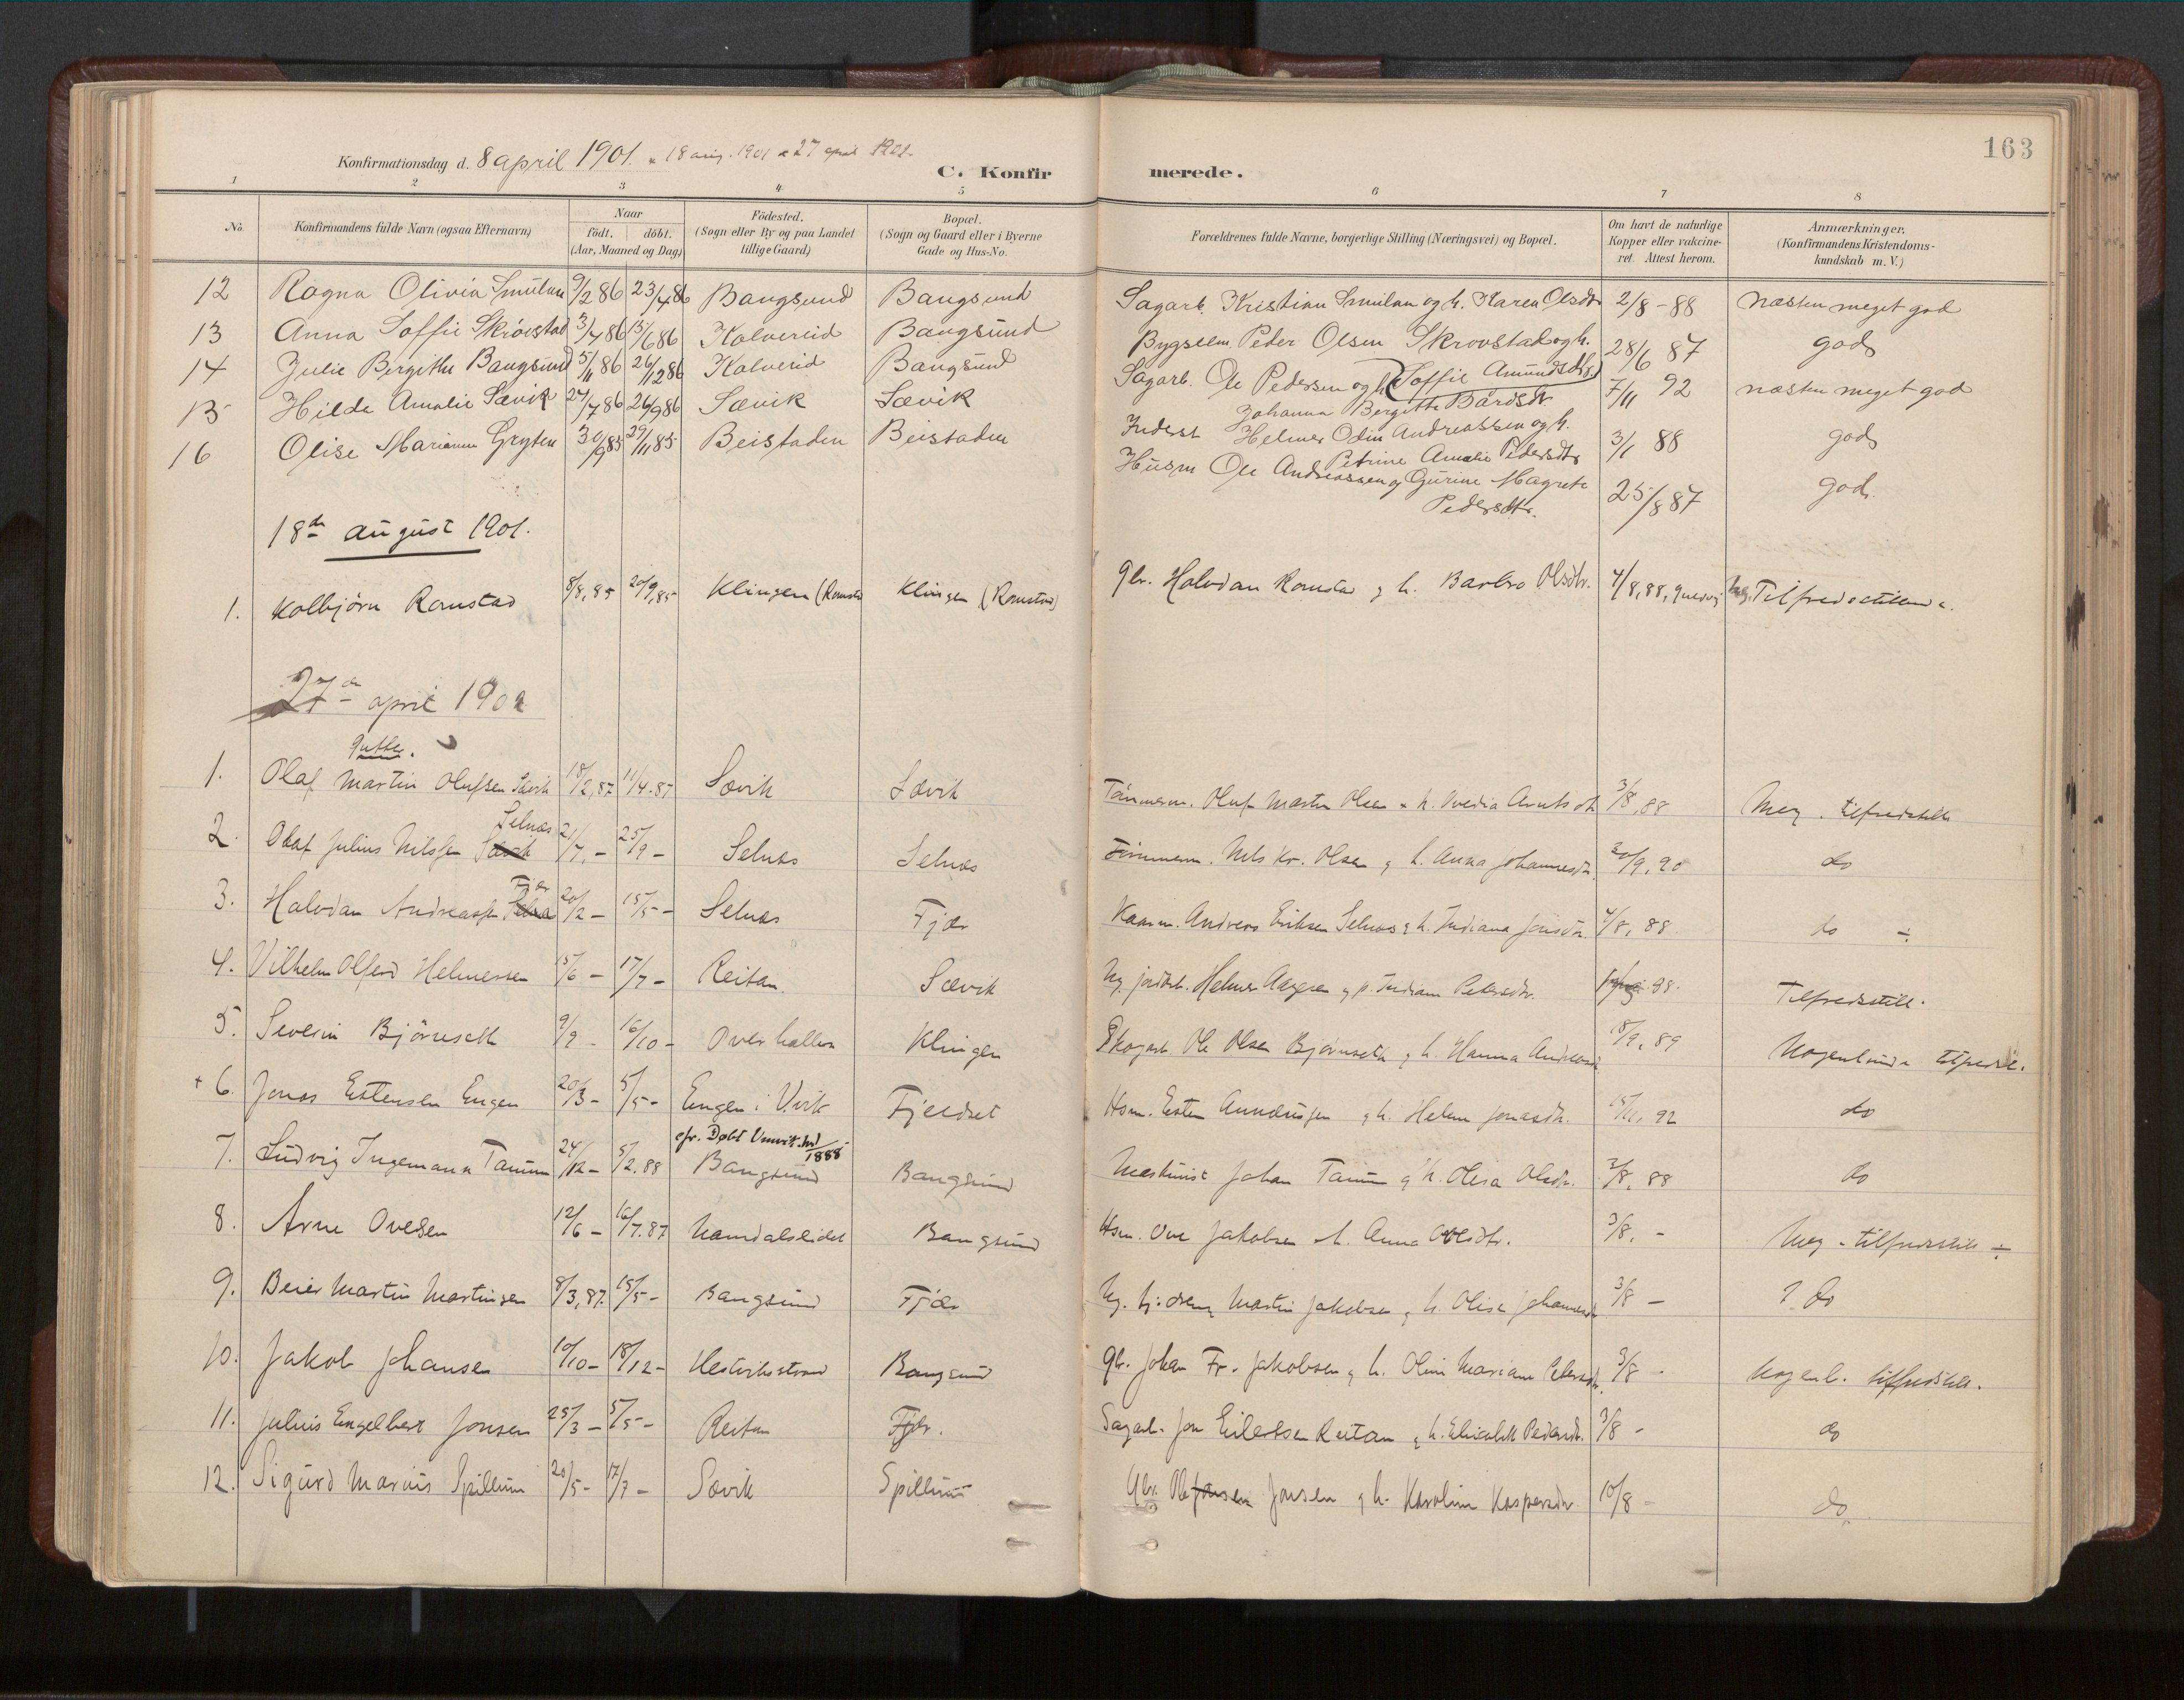 163
Konfirmationsdag d. 8 april 1901. 18 aug. 1901 27 april 1902.
C. Konfirmerede.
1 2 3 4 5 6 7 8
No
Konfirmandens fulde Navn (ogsaa Efternavn)
Naar
födt. döbt.
(Aar, Maaned og Dag)
Födested.
(Sogn eller By og paa Landet
tillige Gaard)
Bopæl.
(Sogn og Gaard eller i Byerne
Gade og Hus-No.
Forældrenes fulde Navne, borgerlige Stilling (Næringsvei) og Bopæl.
Om havt de naturlige
Kopper eller vakcine-
ret. Attest herom.
Anmærkninger.
(Konfirmandens Kristendoms-
kundskab m. V.)
12 Ragna Olivia Smulan 9/2 86 23/4 86 Bangsund Bangsund Sagarb. Kristian Smulan og h. Karen Olsdtr 2/8-88 næsten meget god
13 Anna Soffie Skrövstad 3/4 86 13/6 86 Kolvereid Bangsund Bygselm. Peder Olsen Skrovstad og h. Soffie Amundsdtr. 28/6 87 god
14 Julie Bergithe Bangsund 5/11 86 26/12 86 Kolvereid Bangsund Sagarb. Ole Pedersen og h. Johanna Bergitte Bårdsdtr. 7/11 92 næsten meget god
15 Hilda Amalie Sævik 27/7 86 26/9 86 Sævik Sævik Inderst Helmer Odin Andreassen og h. Petrine Amalie Pedersdtr 3/1 88 god
16 Olise Marianne Gryten 30/9 85 29/11 85 Beistaden Beistaden Husm Ole Andreassen og Gurine Magrete
Pedersdtr. 25/8 87 god.
18de august 1901.
1. Kolbjörn Romstad 8/8, 85 20/9, 85 Klingen (Romstad Klingen (Romstad) Gbr. Halvdan Romstad g h. Barbro Olsdtr. 4/8, 88, Tilfredsstillende.
27de april 1902
Gutter.
1. Olaf Martin Olufsen Sævik 18/2, 87 11/4-87 Sævik Sævik Oluf Martin Olsen h. 3/8, 88 Meg. tilfredstill
2. Olaf Julius Nilssen Selnæs 21/7, - 25/9 - Selnæs Selnæs Nils Kr. Olsen g h. Anna Johannesdtr. 20/9, 90 do
3. Halvdan Andreassen Fjær 20/2 - 15/5 - Selnæs Fjær Anders Eriksen Selnæs g h. Indiana 4/8, 88. do ÷
4. Vilhelm Olferd Helmersen 15/6 - 17/7 - Reitan Sævik Helmer g p. Indiana Petersdtr. 88. Tilfredsstill.
5. Severin Björnseth 9/9 - 16/10 - Overhallen Klingen Skogarb. Ole Olsen Björnseth g h. Hanna 18/9, 89 Nogenlunde tilfredst.
+ 6. Jonas Estensen Engen 20/3 - 5/5 - Engen i Vvik Fjeldset Hsm. Esten g h. Helene Jonasdtr. 15/11, 92 do
7. Ludvig Ingemann Tanum 24/12 - 5/2.88 cfr. Döbt 1888 Bangsund Bangsund Maskinist Johan Tanum g h. Olisa Olsdtr. 3/8, 88 do
8. Arne Ovesen 12/6 - 16/7.87 Namdalseidet Bangsund Hsm. Ove Jakobsen h. Anna 3/8, - Meg - tilfredsstill ÷
9. Beier Martin Martinsen 8/3, 87. 15/5 - Bangsund Fjær Martin Jakobsen g h. Olise Johannesdtr 3/8 - ? do
10. Jakob Johansen 10/10 - 18/12 - Hestviksstrand Bangsund Gbr. Johan Fr. Jakobsen g h. Olini Mariane 3/8 - Nogenl. tilfredstill.
11. Julius Engelbert Jonsen 25/3 - 5/5 - Reitan Fjær. Sagarb. Jon Eilertsen Reitan g h. Elisabeth Pedersdtr. 3/8 - do
12. Sigurd Marius Spillum 20/5 - 17/7 - Sævik Spillum Gbr. Jonsen g h. Karoline Kaspersdtr. 10/8 - do